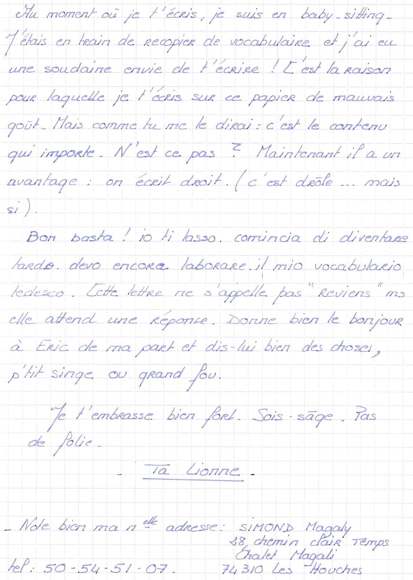 Au moment où je t'écris, je suis en baby-sitting.
J'étais en train de recopier de vocabulaire et j'ai eu
une soudaine envie de t'écrire ! C'est la raison
pour laquelle je t'écris sur ce papier de mauvais
goût. Mais comme tu me le dirai : c'est le contenu
qui importe. N'est ce pas ? Maintenant il a un
avantage : on écrit droit. (c'est drôle ... mais
si).
Bon basta ! io ti lasso. comincia di diventare
tarde. devo encore laborare. il mio vocabulario
tedesco. Cette lettre ne s'appelle pas "Reviens" ms
elle attend une réponse. Donne bien le bonjour
à Eric de ma part et dis-lui bien des choses,
p'tit singe ou grand fou.
Je t'embrasse bien fort. Sois-sâge. Pas
de folie.
- Ta Lionne -
- Note bien ma nelle adresse : SIMOND Magaly
18, chemin clair Temps
Chalet Magali
tel : 50-54-51-07. 74310 Les Houches